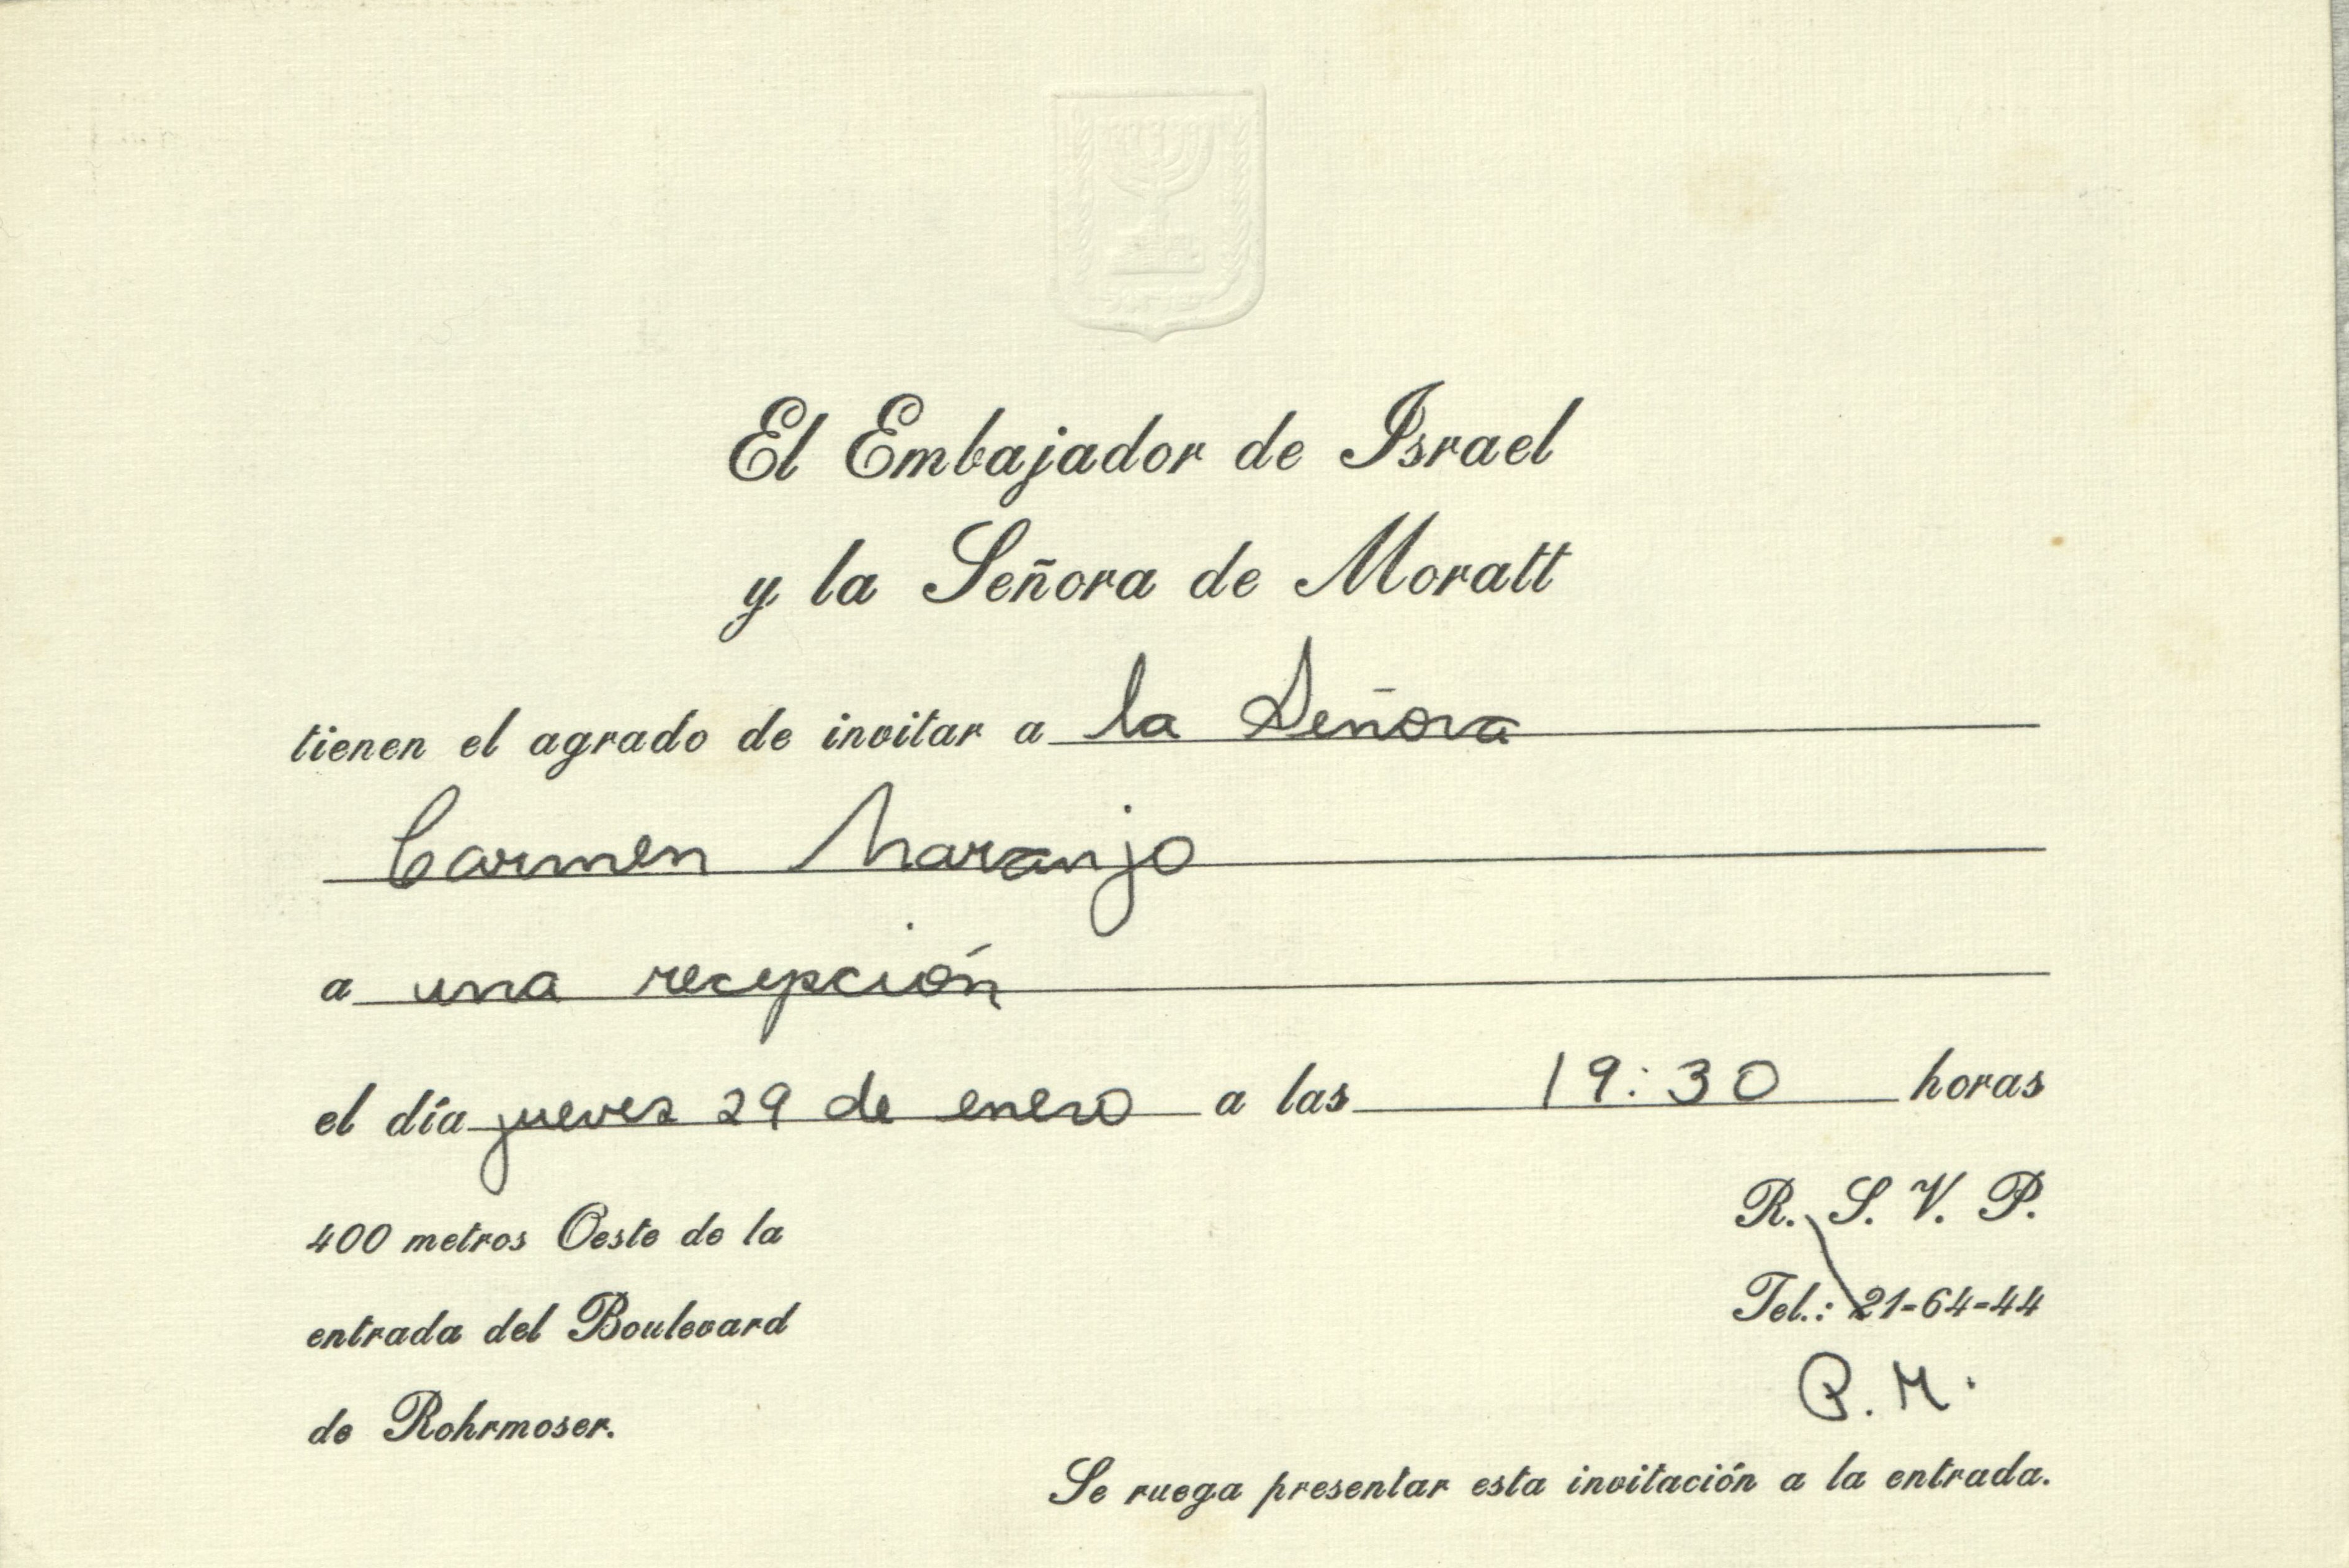 El Embajador de Israel
y la Señora de Moratt
tienen el agrado de invitar a la Señora
Carmen Naranjo
a una recepción
el día jueves 29 de enero a las 19:30 horas
400 metros Oeste de la
entrada del Boulevard
de Rohrmoser.
R. S. V. P.
Tel.: 21-64-44
P.M.
Se ruega presentar esta invitación a la entrada.